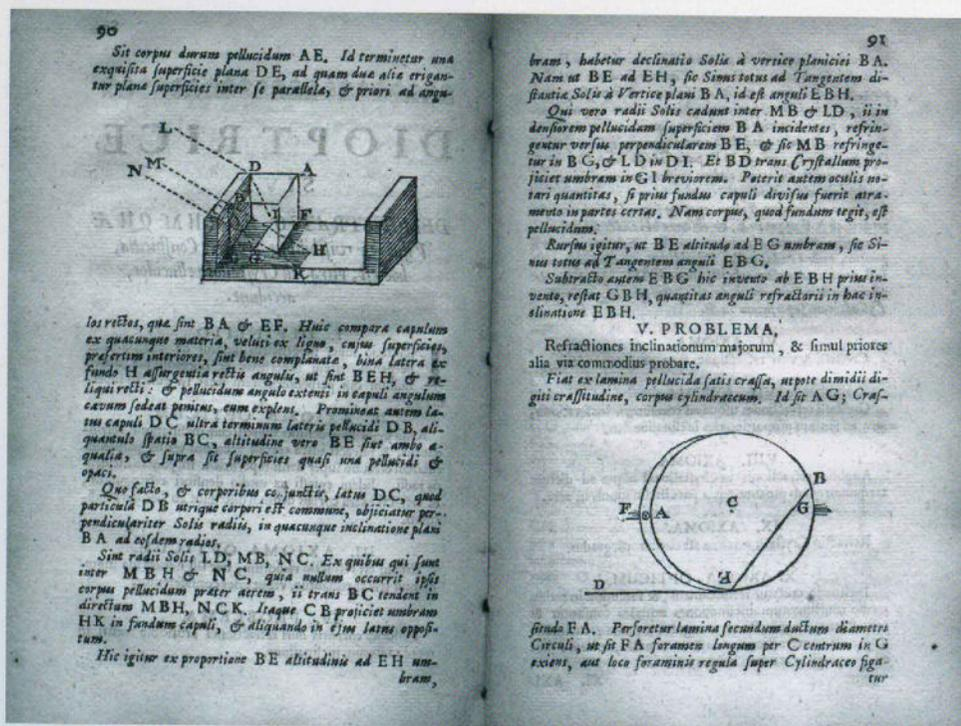 90
Sit corpus durum pellucidum AE. Id terminetur una
exquisita superficie plana DE, ad quam duæ aliæ erigan-
tur planæ superficies inter se parallelæ, & priori ad angu-
L
M
N
D
A
B
I
F
G
H
K
los rectos, quæ sint BA & EF. Huic compara capulum
ex quacunque materia, veluti ex ligno, cujus superficies,
præsertim interiores, sint bene complanatæ, bina latera ex
fundo H assurgentia rectis angulis, ut sint BEH, & re-
liqui recti: & pellucidum angulo extenti in capuli angulum
cavum sedeat penitus, eum explens. Promineat autem la-
tus capuli DC ultra terminum lateris pellucidi DB, ali-
quantulo spatio BC, altitudine vero BE sint ambo æ-
qualia, & supra sit superficies quasi una pellucidi &
opaci.
Quo facto, & corporibus conjunctis, latus DC, quod
particulâ DB utrique corpori est commune, objiciatur per-
pendiculariter Solis radiis, in quacunque inclinatione plani
BA ad eosdem radios.
Sint radii Solis LD, MB, NC. Ex quibus qui sunt
inter MBH & NC, quia nullum occurrit ipsis
corpus pellucidum præter aerem, ii trans BC tendent in
directum MBH, NCK. Itaque CB projiciet umbram
HK in fundum capuli, & aliquando in ejus latus opposi-
tum.
Hic igitur ex proportione BE altitudinis ad EH um-
bram,
91
bram, habetur declinatio Solis à vertice planiciei BA.
Nam ut BE ad EH, sic Sinus totus ad Tangentem di-
stantiæ Solis à Vertice plani BA, id est anguli EBH.
Qui vero radii Solis cadunt inter MB & LD, ii in
densiorem pellucidam superficiem BA incidentes, refrin-
gentur versus perpendicularem BE, & sic MB refringe-
tur in BG, & LD in DI. Et BD trans Crystallum pro-
jiciet umbram in GI breviorem. Poterit autem oculis no-
tari quantitas, si prius fundus capuli divisus fuerit atra-
mento in partes certas. Nam corpus, quod fundum tegit, est
pellucidum.
Rursus igitur, ut BE altitudo ad EG umbram, sic Si-
nus totus ad Tangentem anguli EBG.
Subtracto autem EBG hic invento ab EBH prius in-
vento, restat GBH, quantitas anguli refractorii in hac in-
clinatione EBH.
V. PROBLEMA.
Refractiones inclinationum majorum, & simul priores
alia via commodius probare.
Fiat ex lamina pellucida satis crassa, utpote dimidii di-
giti crassitudine, corpus cylindraceum. Id sit AG; Cras-
B
C
F
A
G
E
D
situdo FA. Perforetur lamina secundum ductum diametri
Circuli, ut sit FA foramen longum per C centrum in G
exiens, aut loco foraminis regula super Cylindraceo figa-
tur